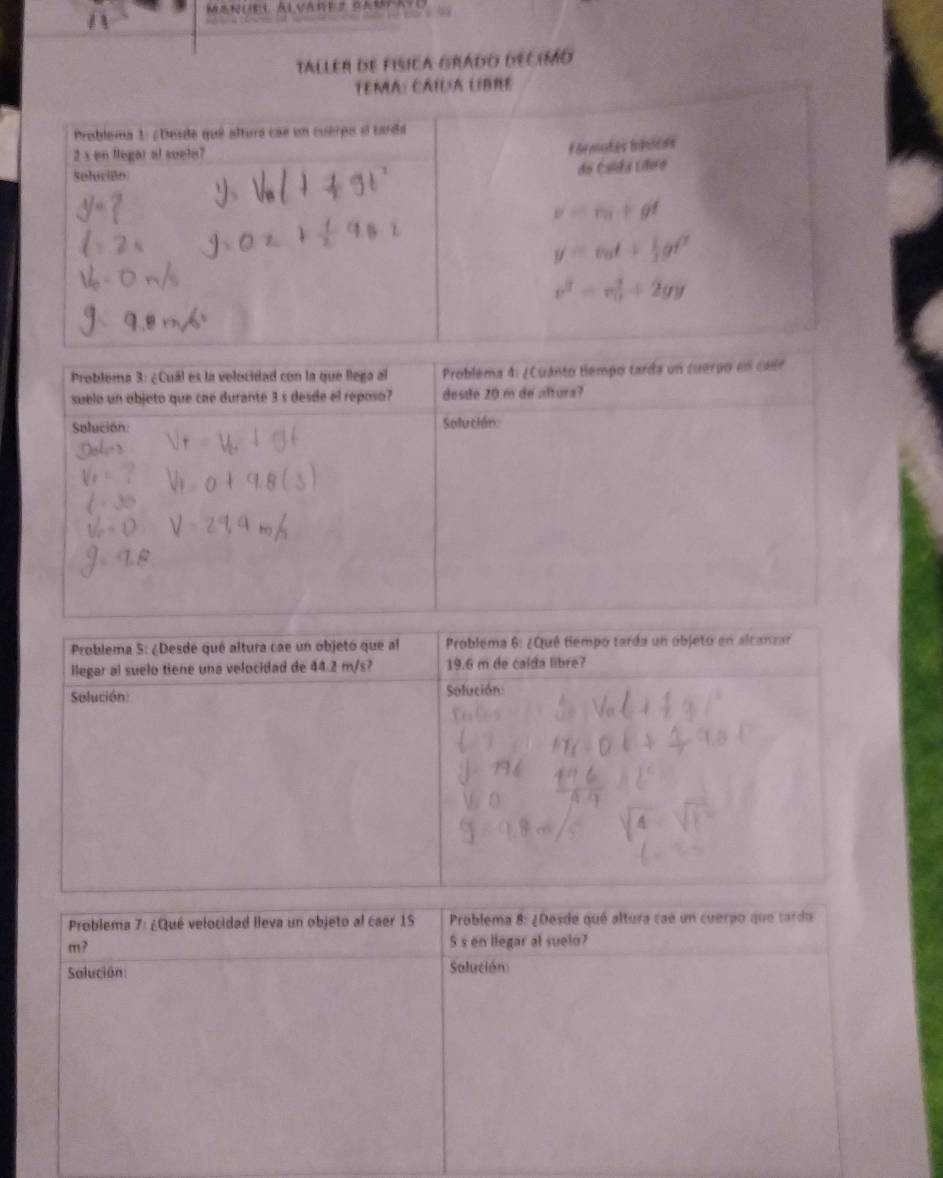 MANUEL ALVAREZ SAMPAYO
TALLER DE FISICA GRADO DECIMO
TEMA: CAIDA LIBRE
Problema 1: ¿Desde qué altura cae un cuerpo si tarda
2 s en llegar al suelo?
Solución:
y = ?
t = 2s
V₀ = 0 m/s
g = 9.8 m/s²
y = V₀t + ½ gt²
Fórmulas básicas
de Caída Libre
v = v₀ + gt
y = v₀t + ½gt²
v² = v₀² + 2gy
Problema 3: ¿Cuál es la velocidad con la que llega al
suelo un objeto que cae durante 3 s desde el reposo?
Solución:
Datos
Vf = ?
V₀ = 0
g = 9.8
Vf = V₀ + gt
Vf = 0 + 9.8(3)
V = 29,4 m/s
Problema 4: ¿Cuánto tiempo tarda un cuerpo en caer
desde 20 m de altura?
Solución:
Problema 5: ¿Desde qué altura cae un objeto que al
llegar al suelo tiene una velocidad de 44.2 m/s?
Solución:
Problema 6: ¿Qué tiempo tarda un objeto en alcanzar
19.6 m de caída libre?
Solución:
Datos
t ?
y = 19.6
V₀ 0
g = 9.8 m/s²
√4 = √t²
t = 2s
Problema 7: ¿Qué velocidad lleva un objeto al caer 15
m?
Solución:
Problema 8: ¿Desde qué altura cae un cuerpo que tarda
5 s en llegar al suelo?
Solución: